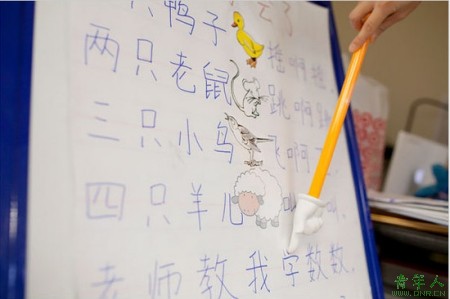 只鸭子摇啊摇
两只老鼠跳啊跳
三只小鸟飞啊飞
四只羊儿叫
老师教我学数数.
青年人
WWW.QNR.CN